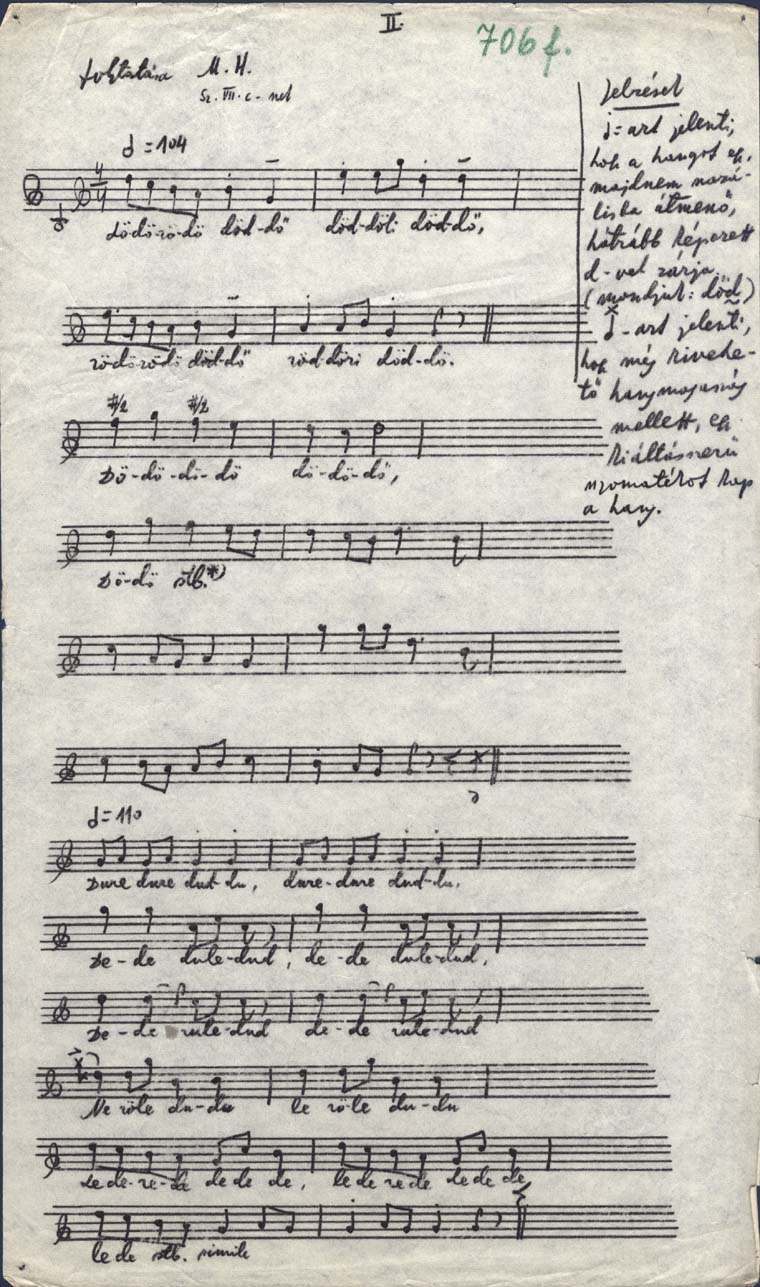 II.
706 f.
M. H.
Sz. VII. c - nel
♩ = 104
dödörödö död-dő död-döli död-dő,
rödörödö död-dő röd-döri död-dő.
#/2 #/2
Dö-dö-dö-dö dö-dö-dö,
Dö-dö stb.*)
♩ = 110
Dure dure dud-du, dure-dure dud-du.
De-de dule-dud, de-de dule-dud,
De-de rule-dud de-de rule-dud
Ne röle du-du le röle du-du
le de-re-de de de de, le de re de de de de,
le de stb. simile
Jelzések
= art jelenti,
hogy a hangot egy,
majdnem nazá-
lisba átmenő,
hátrább képzett
d-vel zárja
(mondjuk: död)
x
- art jelenti,
hogy még kivehe-
tő hangmagasság
mellett, egy
kiáltásszerű
nyomatékot kap
a hang.